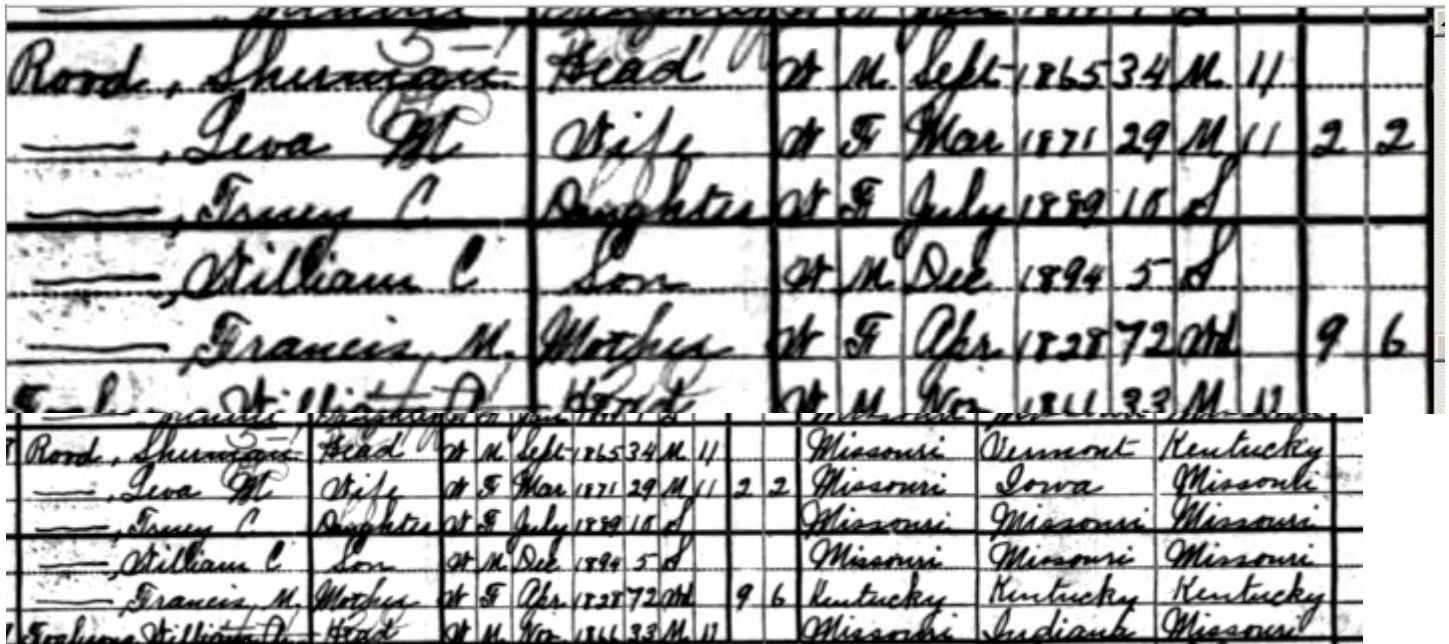 5-1
Rood, Sherman Head W M Sept 1865 34 M 11
—, Leva M Wife W F Mar 1871 29 M 11 2 2
—, C Daughter W F July 1889 10 S
—, William C Son W M Dec 1894 5 S
—, Francis M. Mother W F Apr 1828 72 Wd 9 6
William Head W M Nov 1866 33 M
5-1
Rood, Sherman Head W M Sept 1865 34 M 11 Missouri Vermont Kentucky
—, Leva M Wife W F Mar 1871 29 M 11 2 2 Missouri Iowa Missouri
—, C Daughter W F July 1889 10 S Missouri Missouri Missouri
—, William C Son W M Dec 1894 5 S Missouri Missouri Missouri
—, Francis M. Mother W F Apr 1828 72 Wd 9 6 Kentucky Kentucky Kentucky
William Head W M Nov 1866 33 M Missouri Indiana Missouri